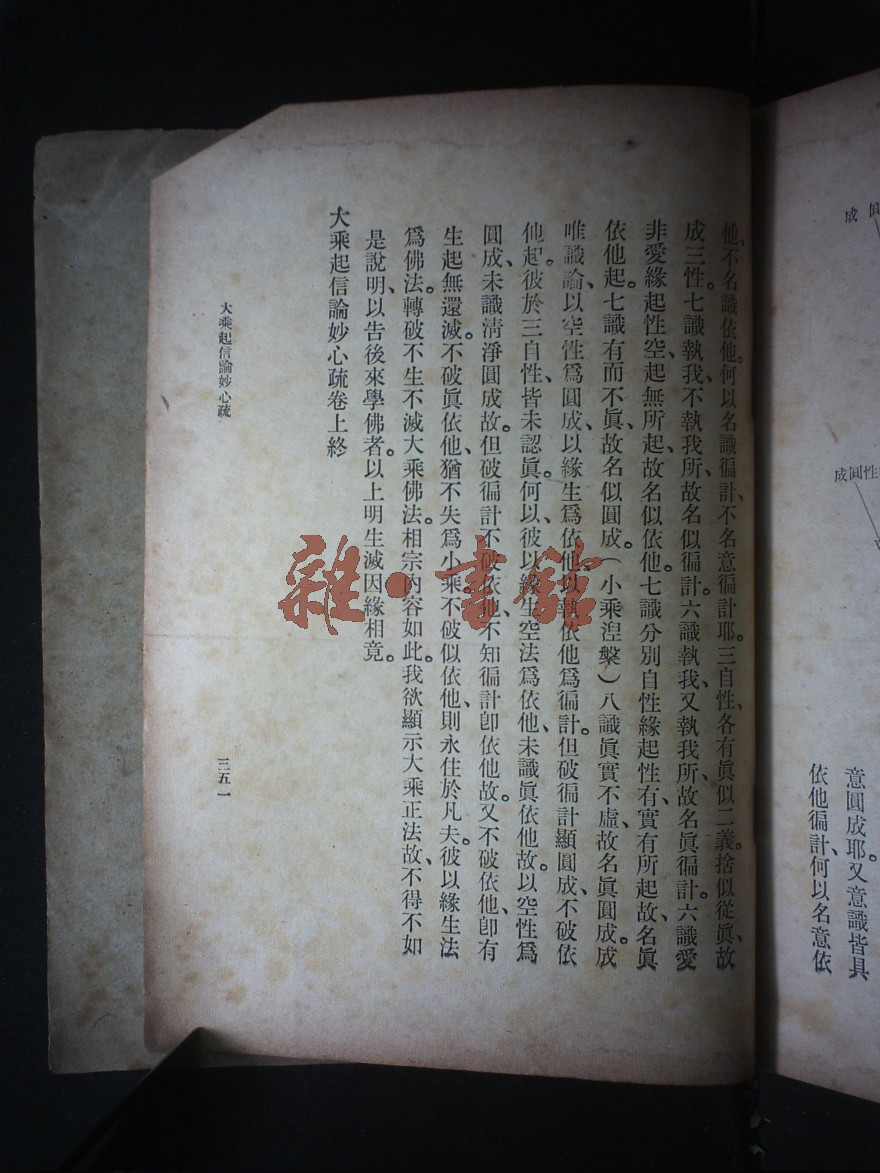 成圓
成圓性
意圓成耶。又意識皆具
依他徧計、何以名意依
他、不名識依他。何以名識徧計、不名意徧計耶。三自性、各有眞似二義。捨似從眞、故
成三性。七識執我、不執我所、故名似徧計。六識執我、又執我所、故名眞徧計。六識愛
非愛緣起性空、起無所起、故名似依他。七識分別自性緣起性有、實有所起故、名眞
依他起。七識有而不眞、故名似圓成。(小乘湼槃)八識眞實不虛、故名眞圓成。成
唯識論、以空性爲圓成、以緣生爲依他。以執依他爲徧計。但破徧計顯圓成、不破依
他起。彼於三自性、皆未認眞。何以、彼以緣生空法爲依他、未識眞依他故。以空性爲
圓成、未識清淨圓成故。但破徧計不破依他、不知徧計卽依他故。又不破依他、卽有
生起無還滅。不破眞依他、猶不失爲小乘、不破似依他、則永住於凡夫。彼以緣生法
爲佛法。轉破不生不滅大乘佛法。相宗內容如此。我欲顯示大乘正法故、不得不如
是說明、以告後來學佛者。以上明生滅因緣相竟。
大乘起信論妙心疏卷上終
大乘起信論妙心疏
三五一
雜·書館